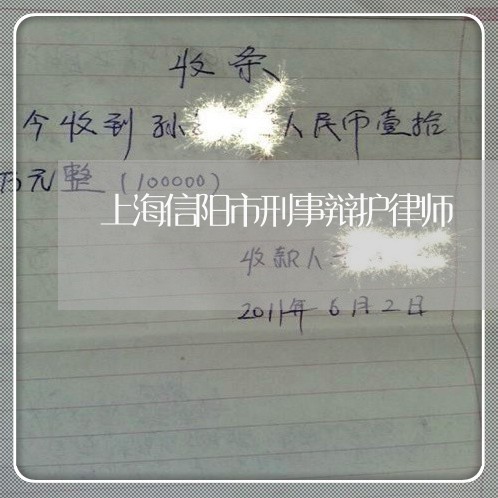 收条
今收到孙 人民币壹拾
万元整（100000）
上海信阳市刑事辩护律师
收款人
2011年6月2日